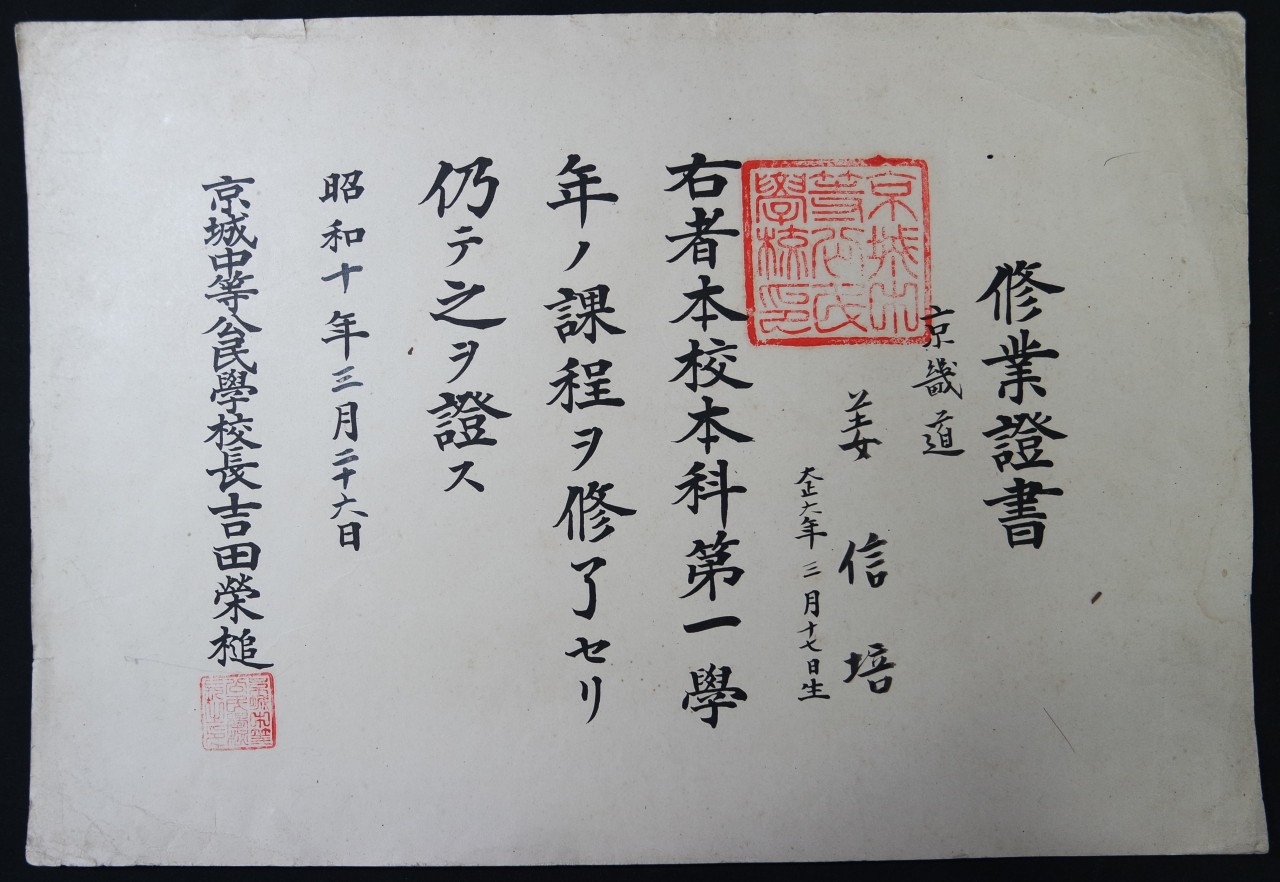 修業證書
京畿道
姜信培
大正六年三月十七日生
右者本校本科第一學
年ノ課程ヲ修了セリ
仍テ之ヲ證ス
昭和十年三月二十六日
京城中等公民學校長吉田榮槌
京城中
等公民
學校印